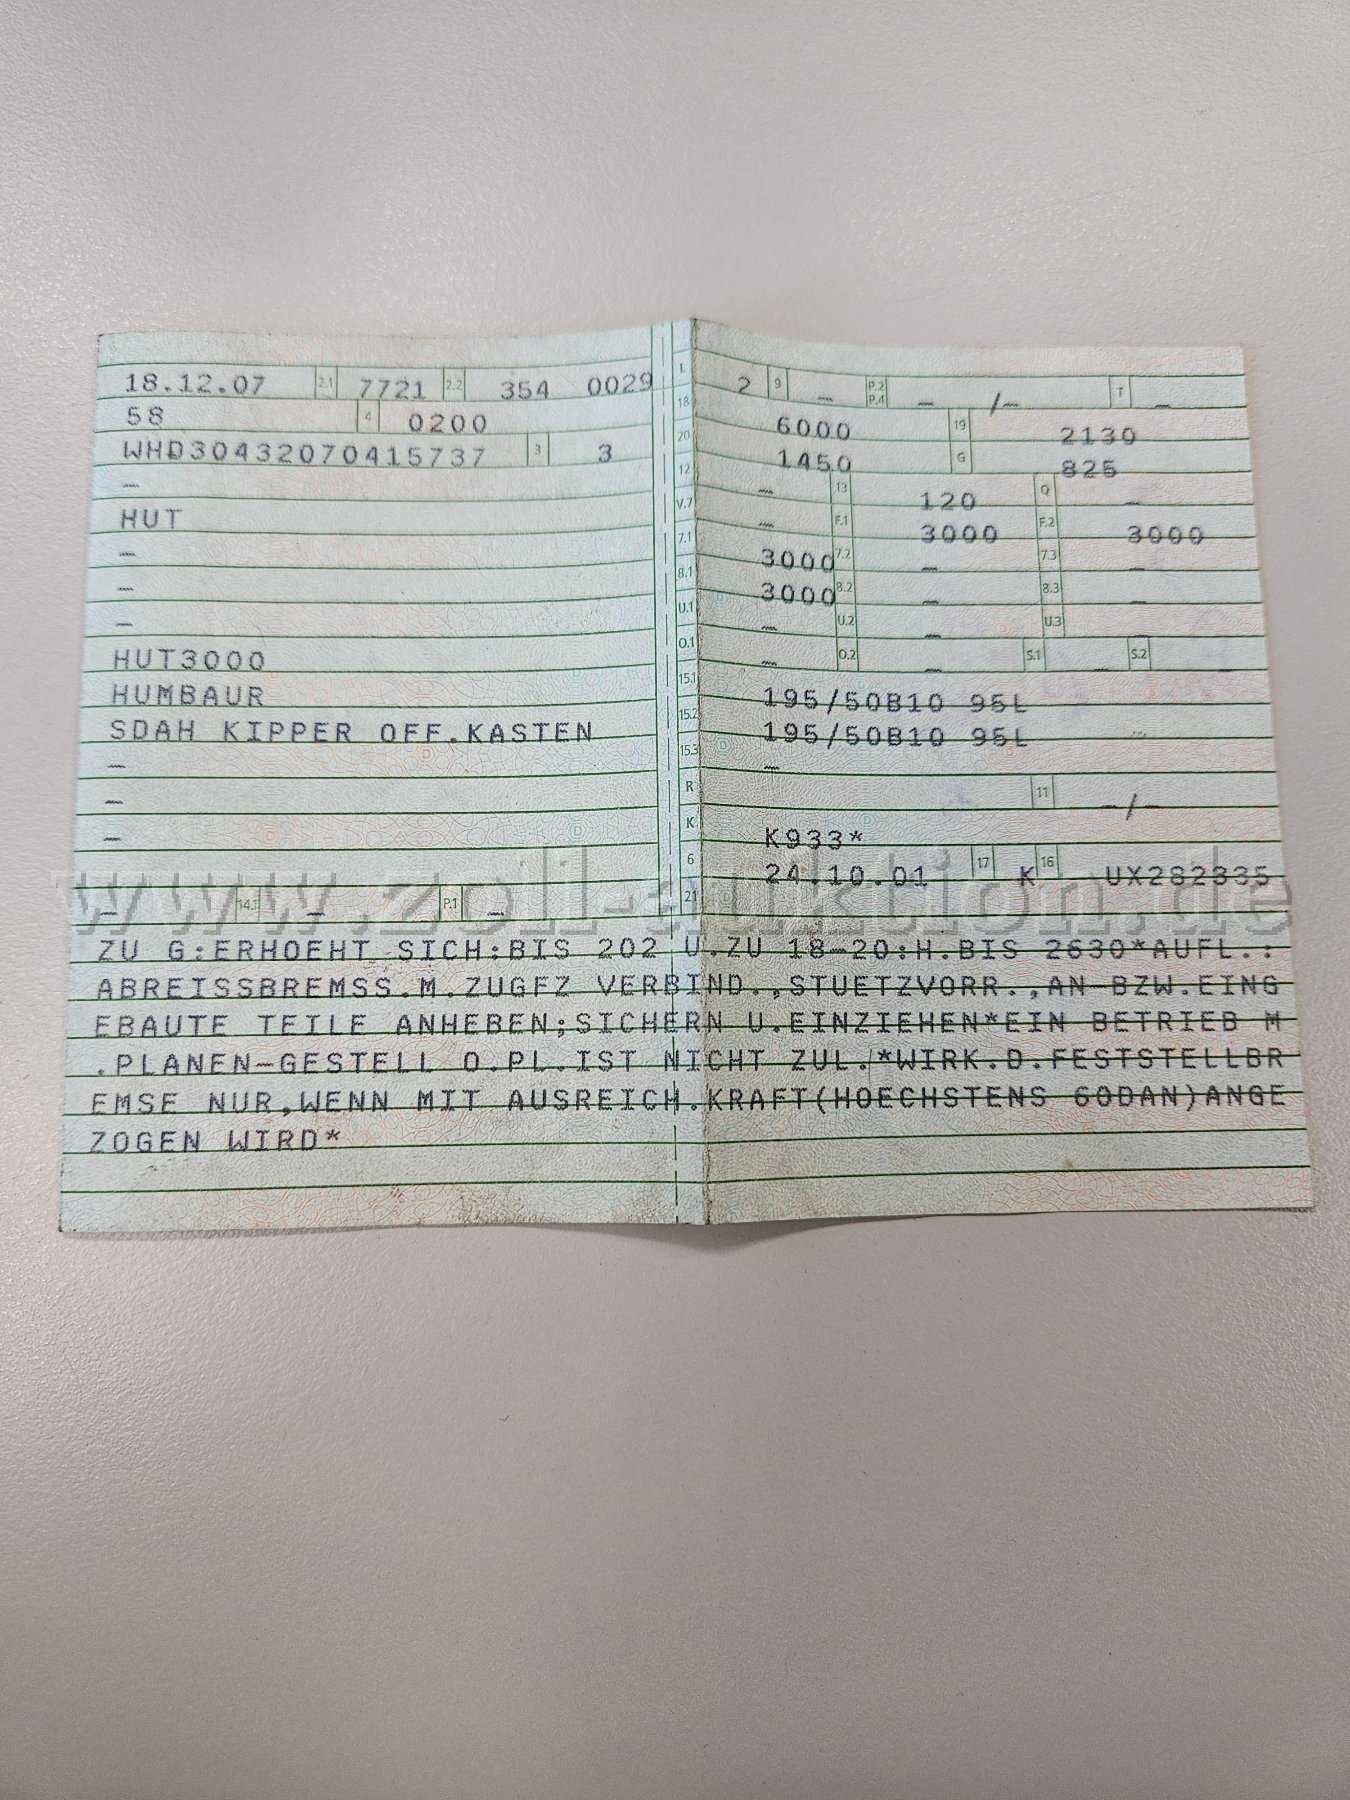 18.12.07 2.1 7721 2.2 354 0029 L 2 9 — P.2 P.4 — /— T —
58 4 0200 18 6000 19 2130
WHD30432070415737 3 3 20 1450 G 825
— 12 — 13 120 Q —
HUT V.7 — F.1 3000 F.2 3000
— 7.1 3000 7.2 — 7.3 —
— 8.1 3000 8.2 — 8.3 —
— U.1 — U.2 — U.3
HUT3000 O.1 — O.2 — S.1 — S.2 —
HUMBAUR 15.1 195/50B10 95L
SDAH KIPPER OFF.KASTEN 15.2 195/50B10 95L
— 15.3 —
— R 11 —/—
— K K933*
6 24.10.01 17 K 16 UX282335
— 14.1 — P.1 — 21
www.zoll-auktion.de
ZU G:ERHOEHT SICH:BIS 202 U.ZU 18-20:H.BIS 2630*AUFL.:
ABREISSBREMSS.M.ZUGFZ VERBIND.,STUETZVORR.,AN BZW.EING
EBAUTE TEILE ANHEBEN;SICHERN U.EINZIEHEN*EIN BETRIEB M
.PLANEN-GESTELL O.PL.IST NICHT ZUL.*WIRK.D.FESTSTELLBR
EMSE NUR,WENN MIT AUSREICH.KRAFT(HOECHSTENS 60DAN)ANGE
ZOGEN WIRD*